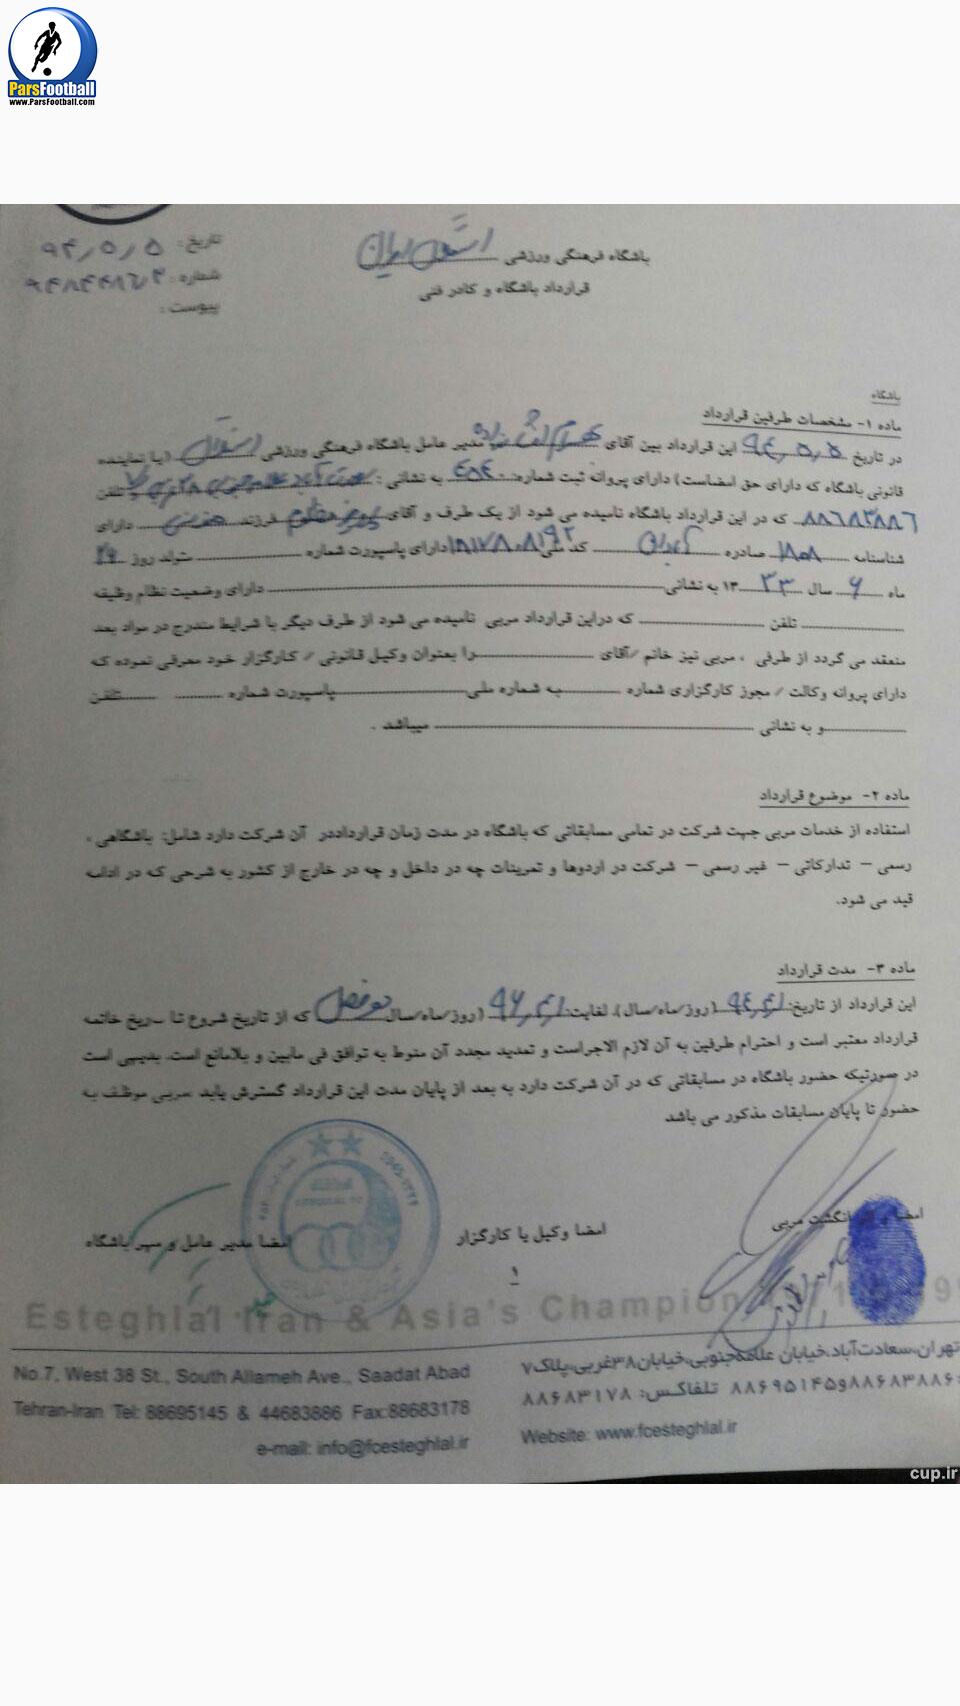 ParsFootball
www.ParsFootball.com
تاریخ: ۹۴/۵/۵
شماره:
پیوست:
باشگاه فرهنگی ورزشی استقلال ایران
قرارداد باشگاه و کادر فنی
باشگاه
ماده ۱- مشخصات طرفین قرارداد
در تاریخ ۹۴/۵/۵ این قرارداد بین آقای بهرام افشارزاده مدیر عامل باشگاه فرهنگی ورزشی استقلال (یا نماینده
قانونی باشگاه که دارای حق امضاست) دارای پروانه ثبت شماره: به نشانی: سعادت آباد تلفن
۸۸۶۸۳۸۸۶ که در این قرارداد باشگاه نامیده می شود از یک طرف و آقای پرویز مظلومی فرزند دارای
شناسنامه ۱۸۰۸ صادره آبادان کد ملی دارای پاسپورت شماره متولد روز
ماه ۶ سال ۱۳۳۳ به نشانی دارای وضعیت نظام وظیفه
تلفن که دراین قرارداد مربی نامیده می شود از طرف دیگر با شرایط مندرج در مواد بعد
منعقد می گردد از طرفی ، مربی نیز خانم /آقای را بعنوان وکیل قانونی / کارگزار خود معرفی نموده که
دارای پروانه وکالت / مجوز کارگزاری شماره به شماره ملی پاسپورت شماره تلفن
و به نشانی میباشد .
ماده ۲- موضوع قرارداد
استفاده از خدمات مربی جهت شرکت در تمامی مسابقاتی که باشگاه در مدت زمان قرارداددر آن شرکت دارد شامل: باشگاهی ،
رسمی – تدارکاتی – غیر رسمی – شرکت در اردوها و تمرینات چه در داخل و چه در خارج از کشور به شرحی که در ادامه
قید می شود.
ماده ۳- مدت قرارداد
این قرارداد از تاریخ: ۹۴/۴/۱ (روز/ماه/سال)، لغایت: ۹۶/۴/۱ (روز/ماه/سال دو فصل که از تاریخ شروع تا تاریخ خاتمه
قرارداد معتبر است و احترام طرفین به آن لازم الاجراست و تمدید مجدد آن منوط به توافق فی مابین و بلامانع است. بدیهی است
در صورتیکه حضور باشگاه در مسابقاتی که در آن شرکت دارد به بعد از پایان مدت این قرارداد گسترش یابد مربی موظف به
حضور تا پایان مسابقات مذکور می باشد
امضا و اثر انگشت مربی
امضا وکیل یا کارگزار
امضا مدیر عامل و مهر باشگاه
۱
Esteghlal Iran & Asia's Champion
تهران،سعادت‌آباد،خیابان علامه‌جنوبی،خیابان۳۸غربی،پلاک۷
۸۸۶۹۵۱۴۵و۸۸۶۸۳۸۸۶ تلفاکس: ۸۸۶۸۳۱۷۸
Website: www.fcesteghlal.ir
No.7, West 38 St., South Allameh Ave., Saadat Abad
Tehran-Iran Tel: 88695145 & 44683886 Fax:88683178
e-mail: info@fcesteghlal.ir
cup.ir